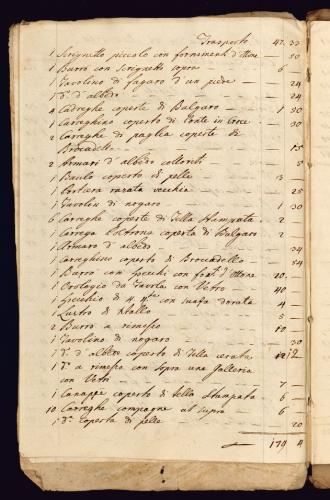 Trasporto 47. 30
1 Scrignetto piccolo con forniment. d'Ottone — 50
1 Burrò con Scrignetto sopra — 6 —
1 Tavolino di fagaro d'un piede — 24
1 d.º d'albedo — 24
4 Cadreghe coperte di Bulgaro — 1 50
1 Carreghino coperto di Ponte in Croce — 30
2 Carreghe di paglia coperte di
Brocadello — 15
2 Armari d'albedo collorati — 5
1 Baulo coperto di pelle — 3
1 Portiera razata vecchia — 25
1 Tavolin di nogaro — 1 30
6 Careghe coperte di Tella Stampata — 2
1 Carega coperta di Bulgaro — 2
1 Armaro d'albedo — 34
1 Carreghino coperto di Brocadello — 54
1 Burrò con Specchi con d'Ottone 20 —
1 Orologio da Tavola con Vetro — 40
1 Specchio di 4 con dorata — 4
1 Lustro di — 5
2 Burrò a rimesso — 10
1 Tavolino di nogaro — 30
1 d.º d'albedo coperto di Tella cerata 12
1 d.º a rimesso con sopra una Galleria
con Vetri — 7 —
1 Canappè coperto di tella Stampata — 6 —
10 Carreghe compagne al supra — 6 —
1 d.ª coperta di pelle — 20
179 4